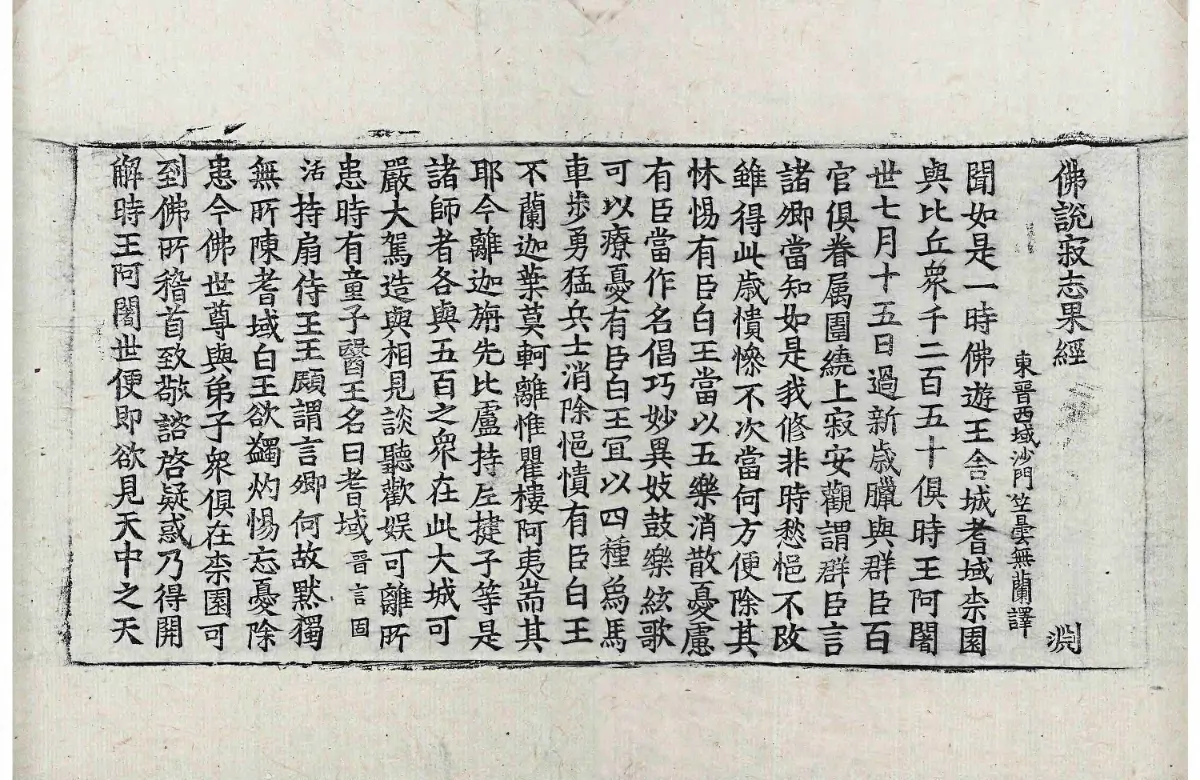 佛說寂志果經 淵
東晉西域沙門竺曇無蘭譯
聞如是一時佛遊王舍城耆域柰園
與比丘衆千二百五十俱時王阿闍
世七月十五日過新歲臘與群臣百
官俱眷属圍繞上寂安觀謂群臣言
諸卿當知如是我修非時愁悒不改
雖得此歲憒㦧不次當何方便除其
怵惕有臣白王當以五樂消散憂慮
有臣當作名倡巧妙異妓鼓樂絃歌
可以療憂有臣白王冝以四種爲馬
車步勇猛兵士消除悒憒有臣白王
不蘭迦葉莫軻離惟瞿樓阿夷耑其
耶今離迦旃先比盧持𡰱揵子等是
諸師者各與五百之衆在此大城可
嚴大駕造與相見談聽歡娱可離所
患時有童子醫王名曰耆域晉言固
活持扇侍王王顧謂言卿何故默獨
無所陳耆域白王欲蠲灼惕忘憂除
患今佛世尊與弟子衆俱在柰園可
到佛所稽首致敬諮啓疑惑乃得開
解時王阿闍世便即欲見天中之天